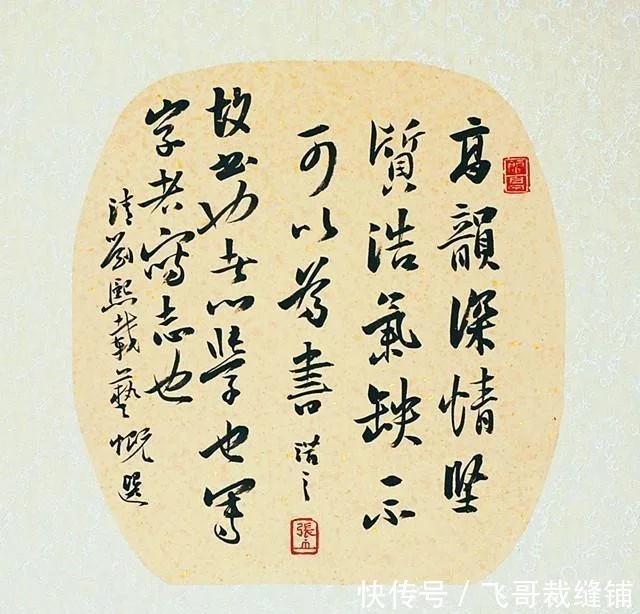 高韻深情堅
質浩氣缺一不
可以為書
故書也者心學也寫
字者寫志也
清劉熙載藝概選
快传号 / 飞哥裁缝铺